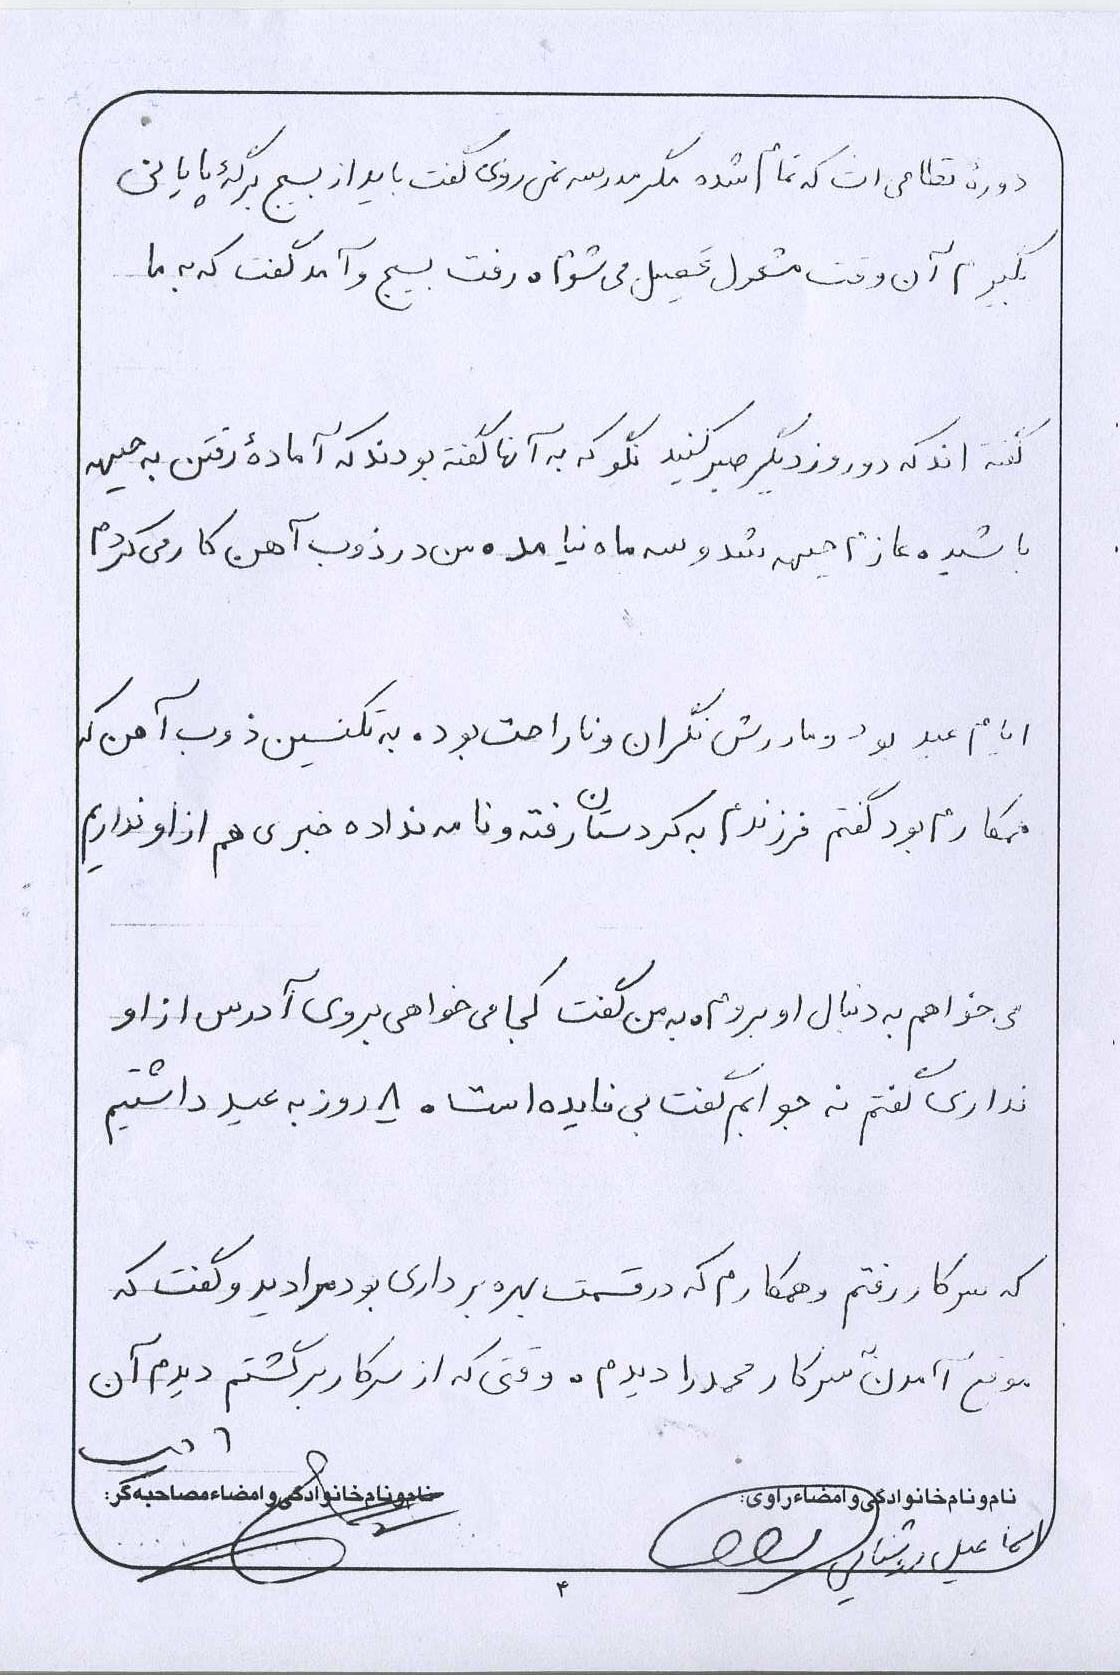 دورهٔ نظامی ات که تمام شده مگر مدرسه نمی روی گفت باید از بسیج برگهٔ پایانی
بگیرم آن وقت مشغول تحصیل می شوم. رفت بسیج و آمد گفت که به ما
گفته اند که دو روز دیگر صبر کنید نگو که به آنها گفته بودند که آمادهٔ رفتن به جبهه
باشید. عازم جبهه شد و سه ماه نیامد. من در ذوب آهن کار می کردم
ایام عید بود و مادرش نگران و ناراحت بود. به تکنسین ذوب آهن که
همکارم بود گفتم فرزندم به کردستان رفته و نامه نداده خبری هم از او نداریم
می خواهم به دنبال او بروم. به من گفت کجا می خواهی بروی آدرس از او
نداری گفتم نه جوابم گفت بی فایده است. ۸ روز به عید داشتیم
که سر کار رفتم و همکارم که در قسمت بهره برداری بود مرا دید و گفت که
موقع آمدن سر کار محمد را دیدم. وقتی که از سر کار برگشتم دیدم آن
نام و نام خانوادگی و امضاء راوی:
نام و نام خانوادگی و امضاء مصاحبه گر:
اسماعیل
۴